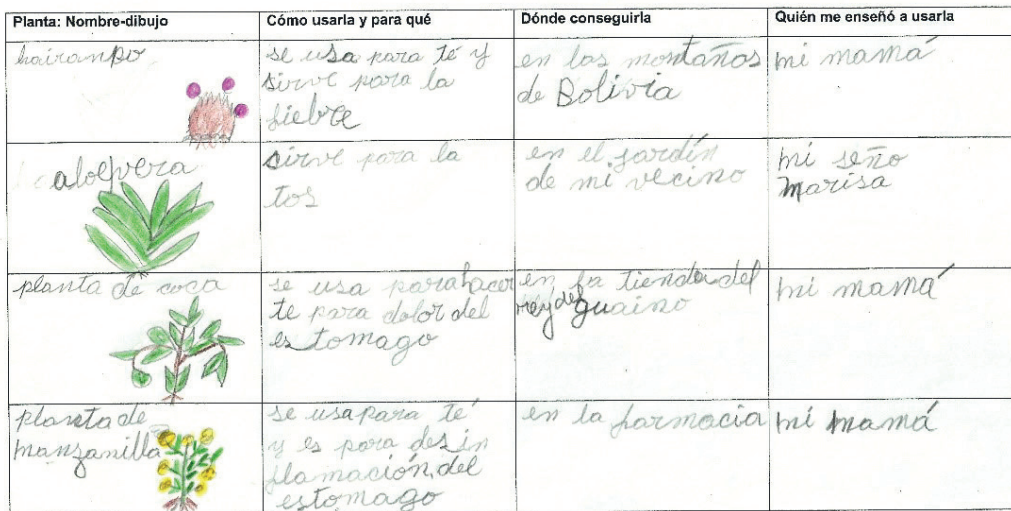 Planta: Nombre-dibujo
Cómo usarla y para qué
Dónde conseguirla
Quién me enseñó a usarla
hairanpo
se usa para té y
sirve para la
fiebre
en las montaños
de Bolivia
mi mamá
aloevera
sirve para la
tos
en el jardín
de mi vecino
mi seño
Marisa
planta de coca
se usa para hacer
te para dolor del
estomago
en la tienda del
rey del guaino
mi mamá
planta de
manzanilla
se usa para té
y es para desin
flamación del
estomago
en la farmacia
mi mamá